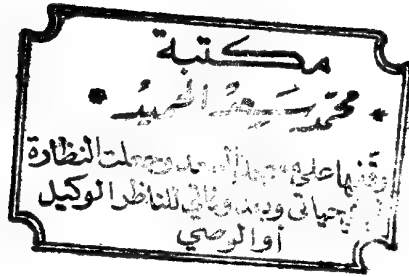 مكتبة
محمد سعد الحميد
وقفها على معهد السعد وجعلت النظارة
حياتي وبعد وفاتي للناظر الوكيل
أو الوصي